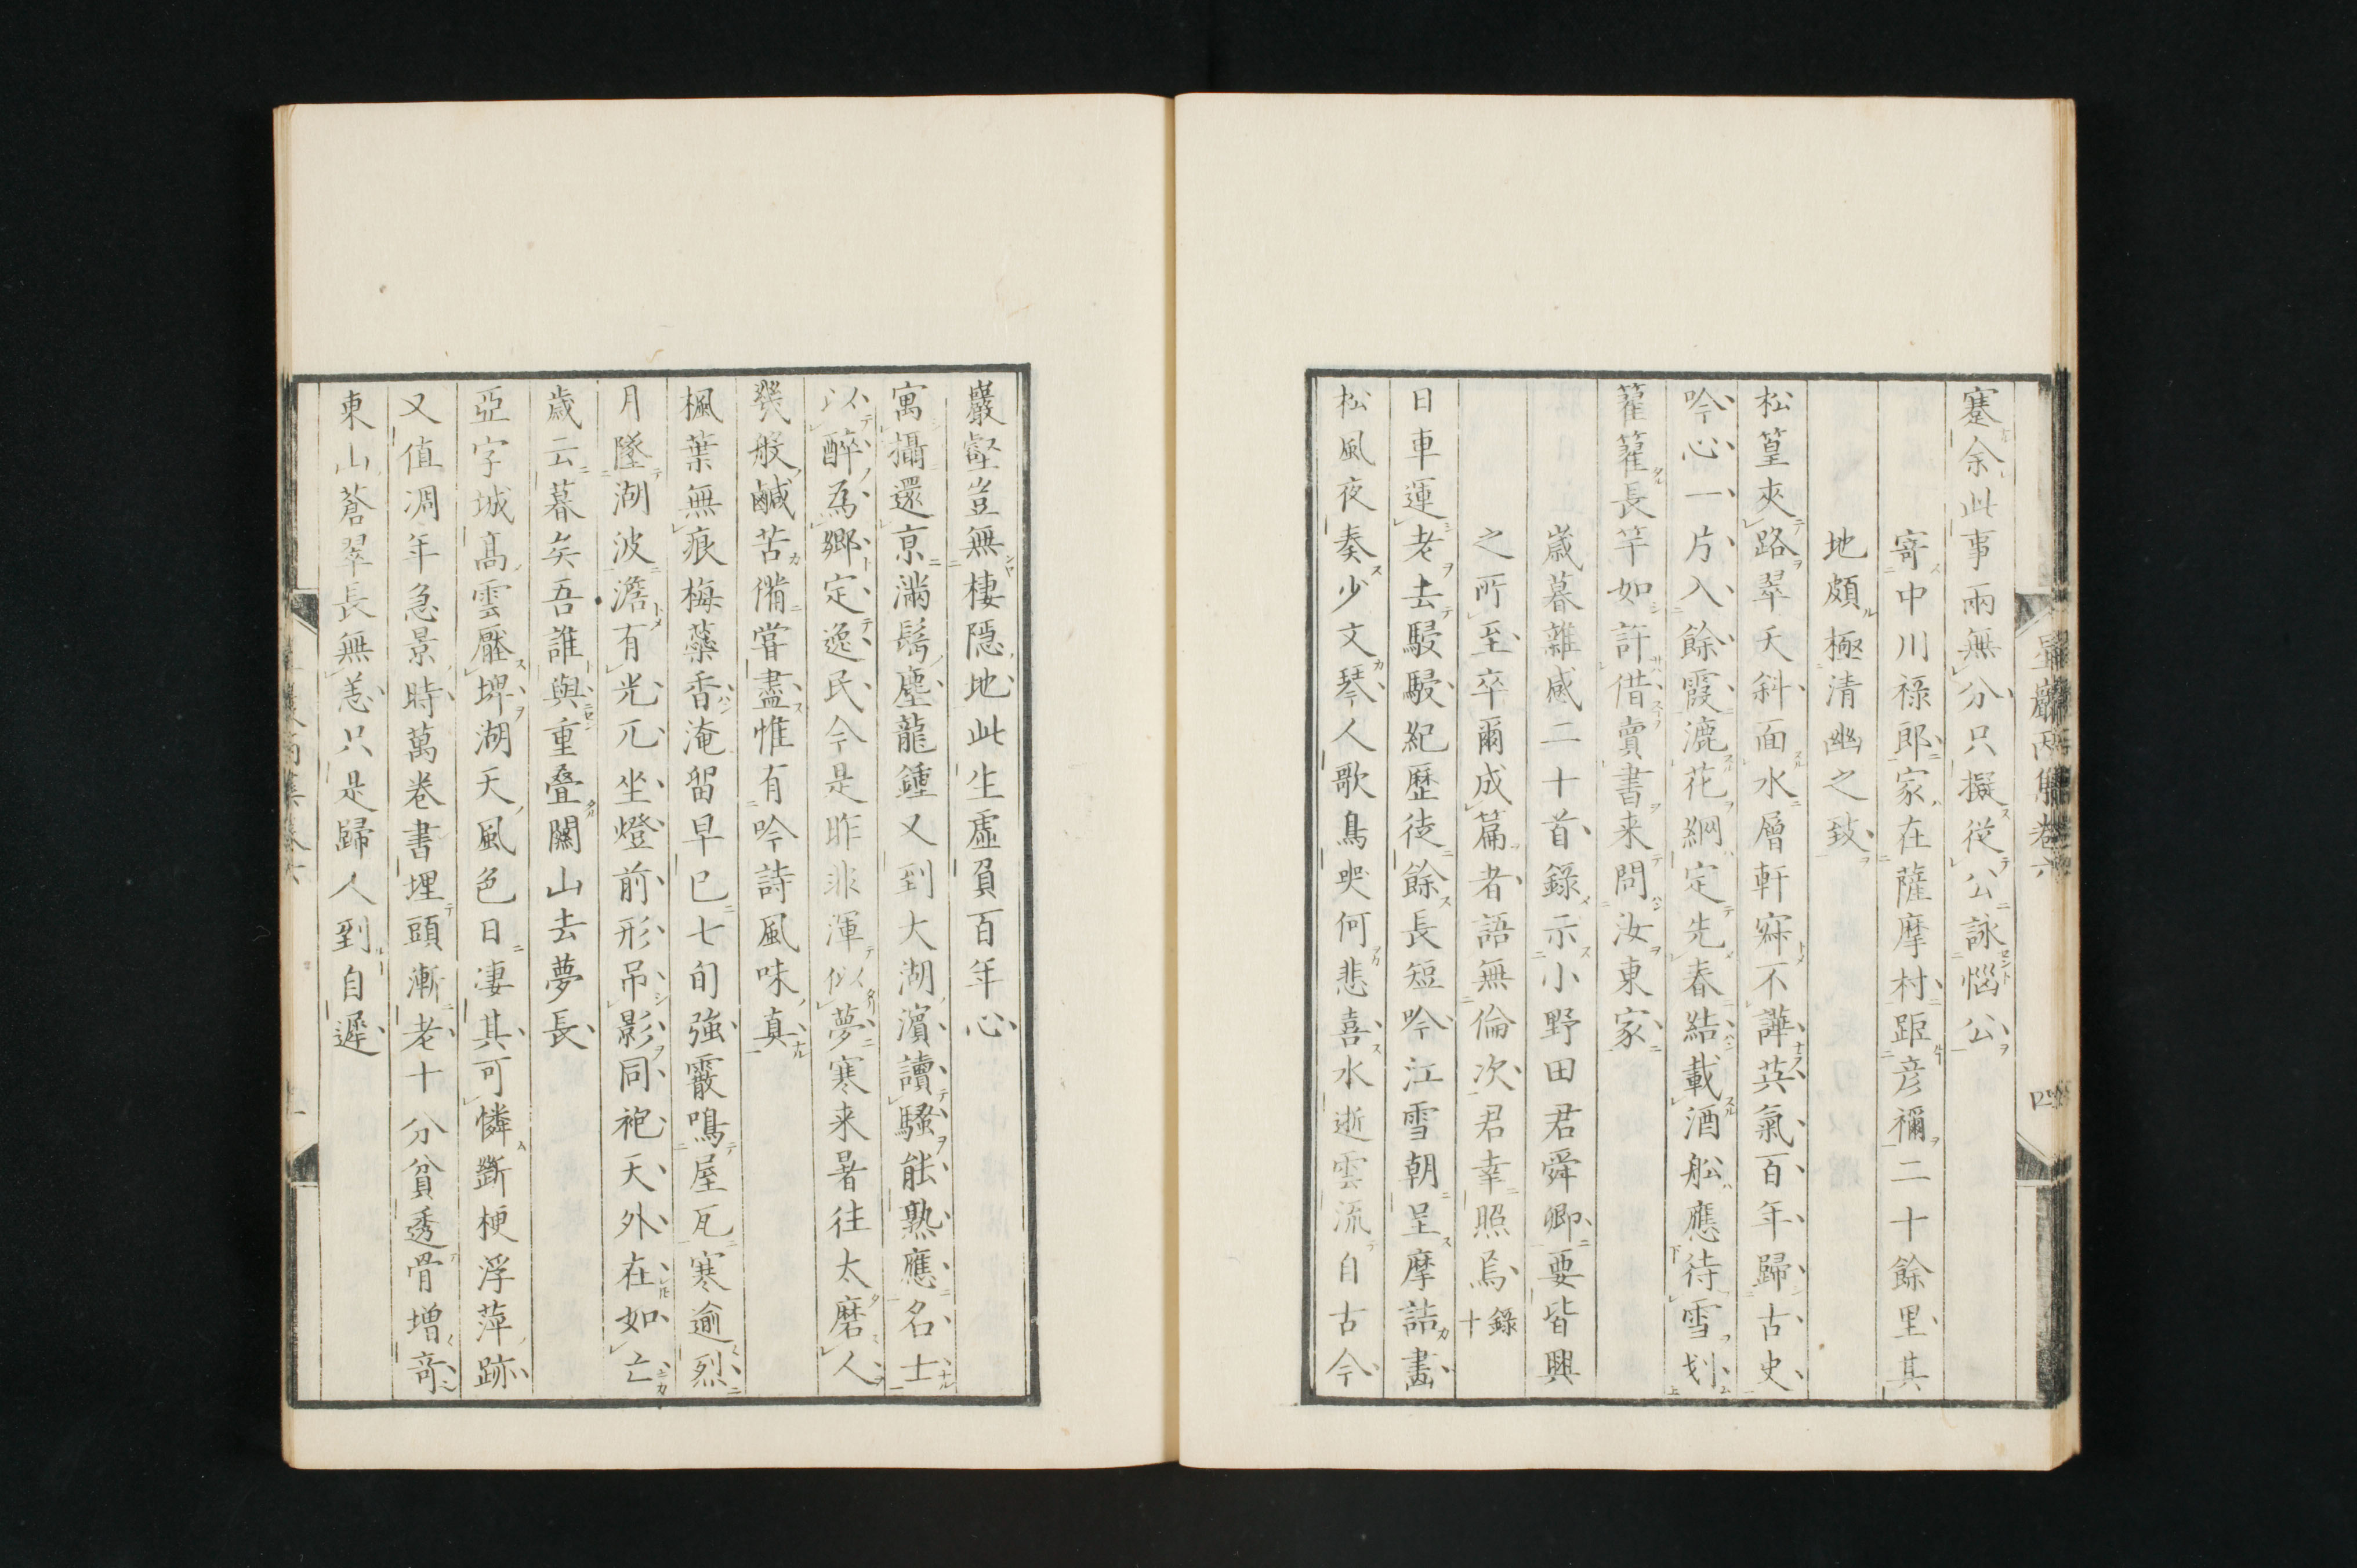 蹇余此事兩無分只擬從公詠惱公
寄中川祿郎家在薩摩村距彦禰二十餘里其
地頗極清幽之致
松篁夾路翠夭斜面水層軒寐不譁英氣百年歸古史
吟心一片入餘霞漉花網定先春結載酒舩應待雪划
籊籊長竿如許借賣書来問汝東家
歳暮雜感二十首錄示小野田君舜卿要皆興
之所至卒爾成篇者語無倫次君幸照焉錄十
日車運老去駸駸紀歷徒餘長短吟江雪朝呈摩詰畵
松風夜奏少文琴人歌鳥哭何悲喜水逝雲流自古今
巖壑豈無棲隱地此生虛負百年心
寓攝還京滿髩塵龍鍾又到大湖濵讀騷能熟應名士
以醉為鄉定逸民今是昨非渾似夢寒来暑往太磨人
幾般鹹苦備甞盡惟有吟詩風味真
楓葉無痕梅蘂香淹畱早已七旬強霰鳴屋瓦寒逾烈
月墜湖波澹有光兀坐燈前形吊影同袍天外在如亡
歲云暮矣吾誰與重疊關山去夢長
亞字城高雲壓埤湖天風色日凄其可憐斷梗浮萍跡
又值凋年急景時萬卷書埋頭漸老十分貧透骨增奇
東山蒼翠長無恙只是歸人到自遲